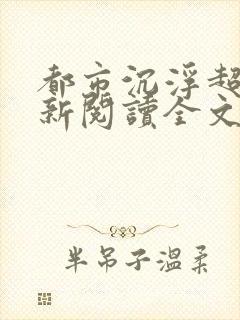 都市沉浮超
新閱讀全文
半吊子溫柔